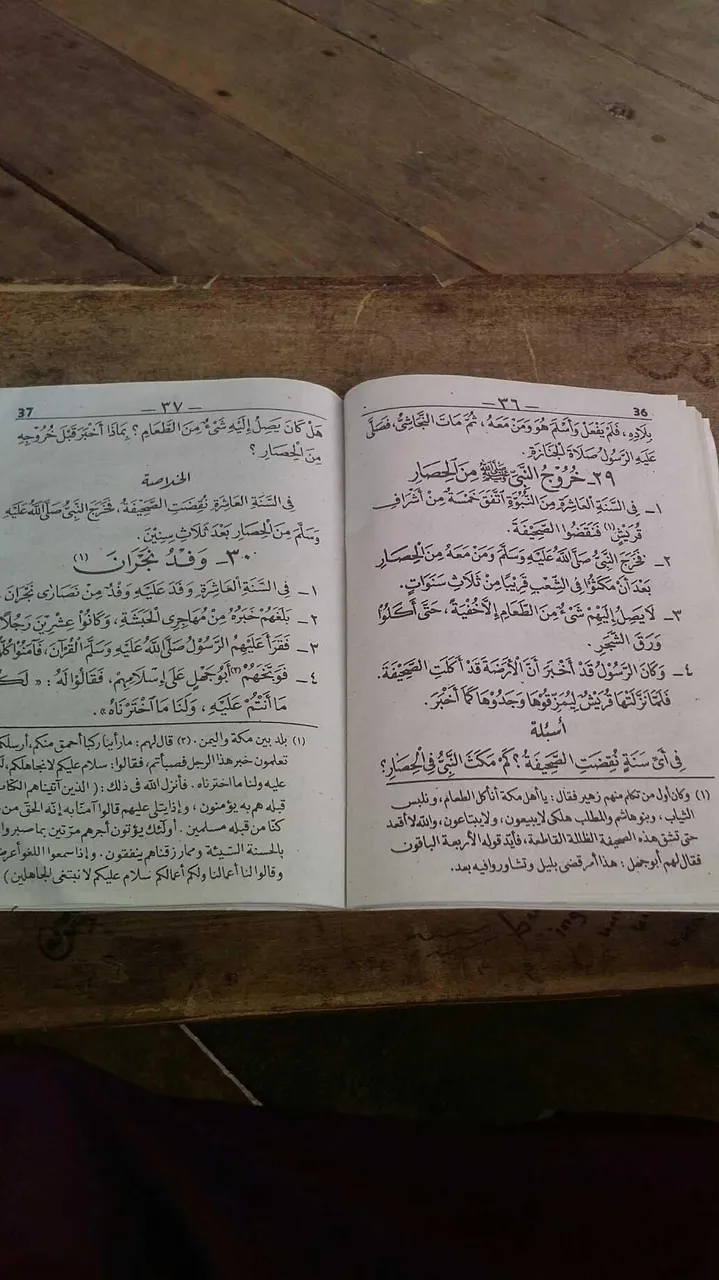 36 — ٣٦ —
بِلَادِهِ، فَلَمْ يَفْعَلْ وَأَسْلَمَ هُوَ وَمَنْ مَعَهُ، ثُمَّ مَاتَ النَّجَاشِيُّ، فَصَلَّى
عَلَيْهِ الرَّسُولُ صَلَاةَ الْجَنَازَةِ.
٢٩- خُرُوْجُ النَّبِيِّ ﷺ مِنَ الْحِصَارِ
١ـ فِى السَّنَةِ الْعَاشِرَةِ مِنَ النُّبُوَّةِ اتَّفَقَ خَمْسَةٌ مِنْ أَشْرَافِ
قُرَيْشٍ (١) فَنَقَضُوا الصَّحِيْفَةَ.
٢ـ فَخَرَجَ النَّبِيُّ صَلَّى اللهُ عَلَيْهِ وَسَلَّمَ وَمَنْ مَعَهُ مِنَ الْحِصَارِ
بَعْدَ أَنْ مَكَثُوْا فِى الشِّعْبِ قَرِيْبًا مِنْ ثَلَاثِ سَنَوَاتٍ.
٣ـ لَا يَصِلُ إِلَيْهِمْ شَىْءٌ مِنَ الطَّعَامِ إِلَّا خُفْيَةً، حَتَّى أَكَلُوْا
وَرَقَ الشَّجَرِ.
٤ـ وَكَانَ الرَّسُوْلُ قَدْ أَخْبَرَ أَنَّ الْأَرَضَةَ قَدْ أَكَلَتِ الصَّحِيْفَةَ.
فَلَمَّا نَزَّلَتْهَا قُرَيْشٌ لِيُمَزِّقُوْهَا وَجَدُوْهَا كَمَا أَخْبَرَ.
أسئلة
فِى أَىِّ سَنَةٍ نُقِضَتِ الصَّحِيْفَةُ؟ كَمْ مَكَثَ النَّبِيُّ فِى الْحِصَارِ؟
(١) وكان أول من تكلم منهم زهير فقال: يا أهل مكة أنأكل الطعام، ونلبس
الثياب، وبنو هاشم والمطلب هلكى لا يبيعون، ولا يبتاعون، والله لا أقعد
حتى تشق هذه الصحيفة الظالمة القاطعة، فأيد قوله الأربعة الباقون
فقال لهم أبو جهل: هذا أمر قضى بليل وتشاور وا فيه بعد.
37 — ٣٧ —
هَلْ كَانَ يَصِلُ إِلَيْهِ شَىْءٌ مِنَ الطَّعَامِ؟ بِمَاذَا أَخْبَرَ قَبْلَ خُرُوْجِهِ
مِنَ الْحِصَارِ؟
الخلاصة
فِى السَّنَةِ الْعَاشِرَةِ نُقِضَتِ الصَّحِيْفَةُ، فَخَرَجَ النَّبِيُّ صَلَّى اللهُ عَلَيْهِ
وَسَلَّمَ مِنَ الْحِصَارِ بَعْدَ ثَلَاثِ سِنِيْنَ.
٣٠- وَفْدُ نَجْرَانَ (١)
١ـ فِى السَّنَةِ الْعَاشِرَةِ وَفَدَ عَلَيْهِ وَفْدٌ مِنْ نَصَارَى نَجْرَانَ
٢ـ بَلَغَهُمْ خَبَرُهُ مِنْ مُهَاجِرِى الْحَبَشَةِ، وَكَانُوْا عِشْرِيْنَ رَجُلًا
٣ـ فَقَرَأَ عَلَيْهِمُ الرَّسُوْلُ صَلَّى اللهُ عَلَيْهِ وَسَلَّمَ الْقُرْآنَ، فَآمَنُوْا
٤ـ فَوَبَّخَهُمْ (٢) أَبُوْ جَهْلٍ عَلَى إِسْلَامِهِمْ، فَقَالُوْا لَهُ: «لَكَ
مَا أَنْتُمْ عَلَيْهِ، وَلَنَا مَا اخْتَرْنَاهُ».
(١) بلد بين مكة واليمن. (٢) قال لهم: ما رأينا ركبا أحمق منكم، أرسلكم
تعلمون خبر هذا الرجل فصبأتم، فقالوا: سلام عليكم لا نجاهلكم،
عليه ولنا ما اخترناه. فأنزل الله فى ذلك: (الذين آتيناهم الكتاب
قبله هم به يؤمنون، وإذا يتلى عليهم قالوا آمنا به إنه الحق من
كنا من قبله مسلمين. أولئك يؤتون أجرهم مرّتين بما صبروا
بالحسنة السيئة ومما رزقناهم ينفقون. وإذا سمعوا اللغو
وقالوا لنا أعمالنا ولكم أعمالكم سلام عليكم لا نبتغى الجاهلين)